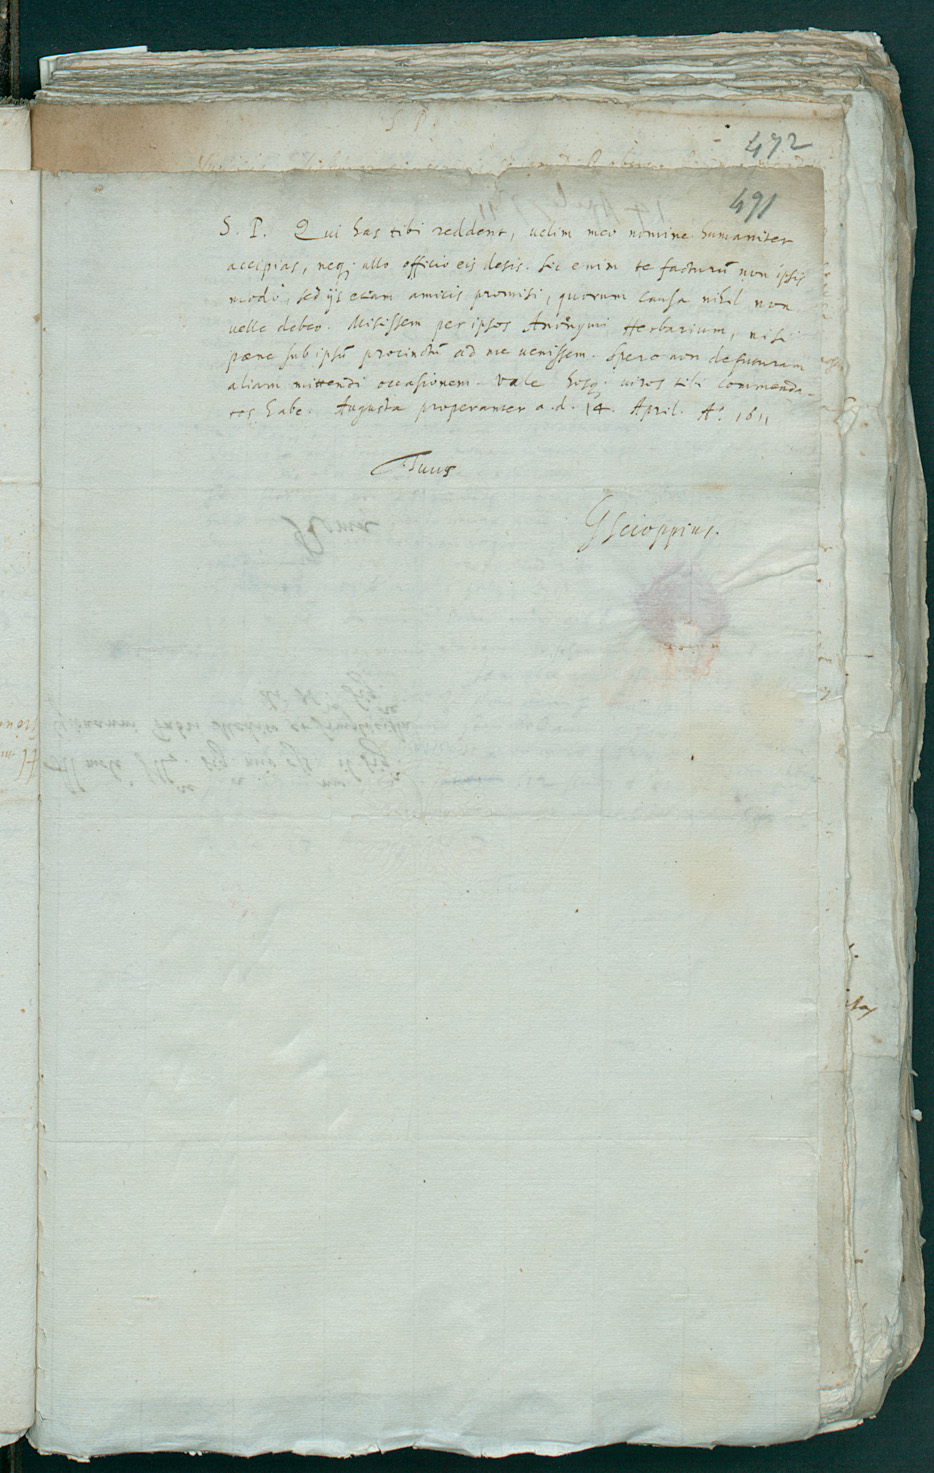 472
491
S. P. Qui has tibi reddent, uelim meo nomine humaniter
accipias, neq; ullo officio eis desis. Sic enim te facturū non ipsis
modo, sed ijs etiam amicis promisi, quorum causa nihil non
uelle debeo. Misissem per ipsos Anonymi Herbarium, nisi
paene sub ipsū procinctū ad me uenissent. Spero non defuturam
aliam mittendi occasionem. Vale hosq; uiros tibi commenda-
tos habe. Augusta properanter a. d. 14. April. Aº 1611
Tuus
GScioppius.